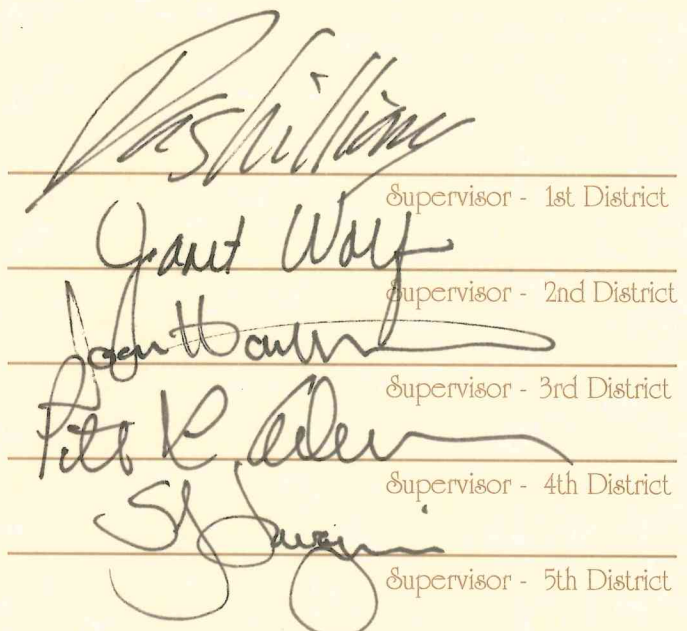 Das Williams
Supervisor - 1st District
Janet Wolf
Supervisor - 2nd District
Joan Hartmann
Supervisor - 3rd District
Supervisor - 4th District
Supervisor - 5th District